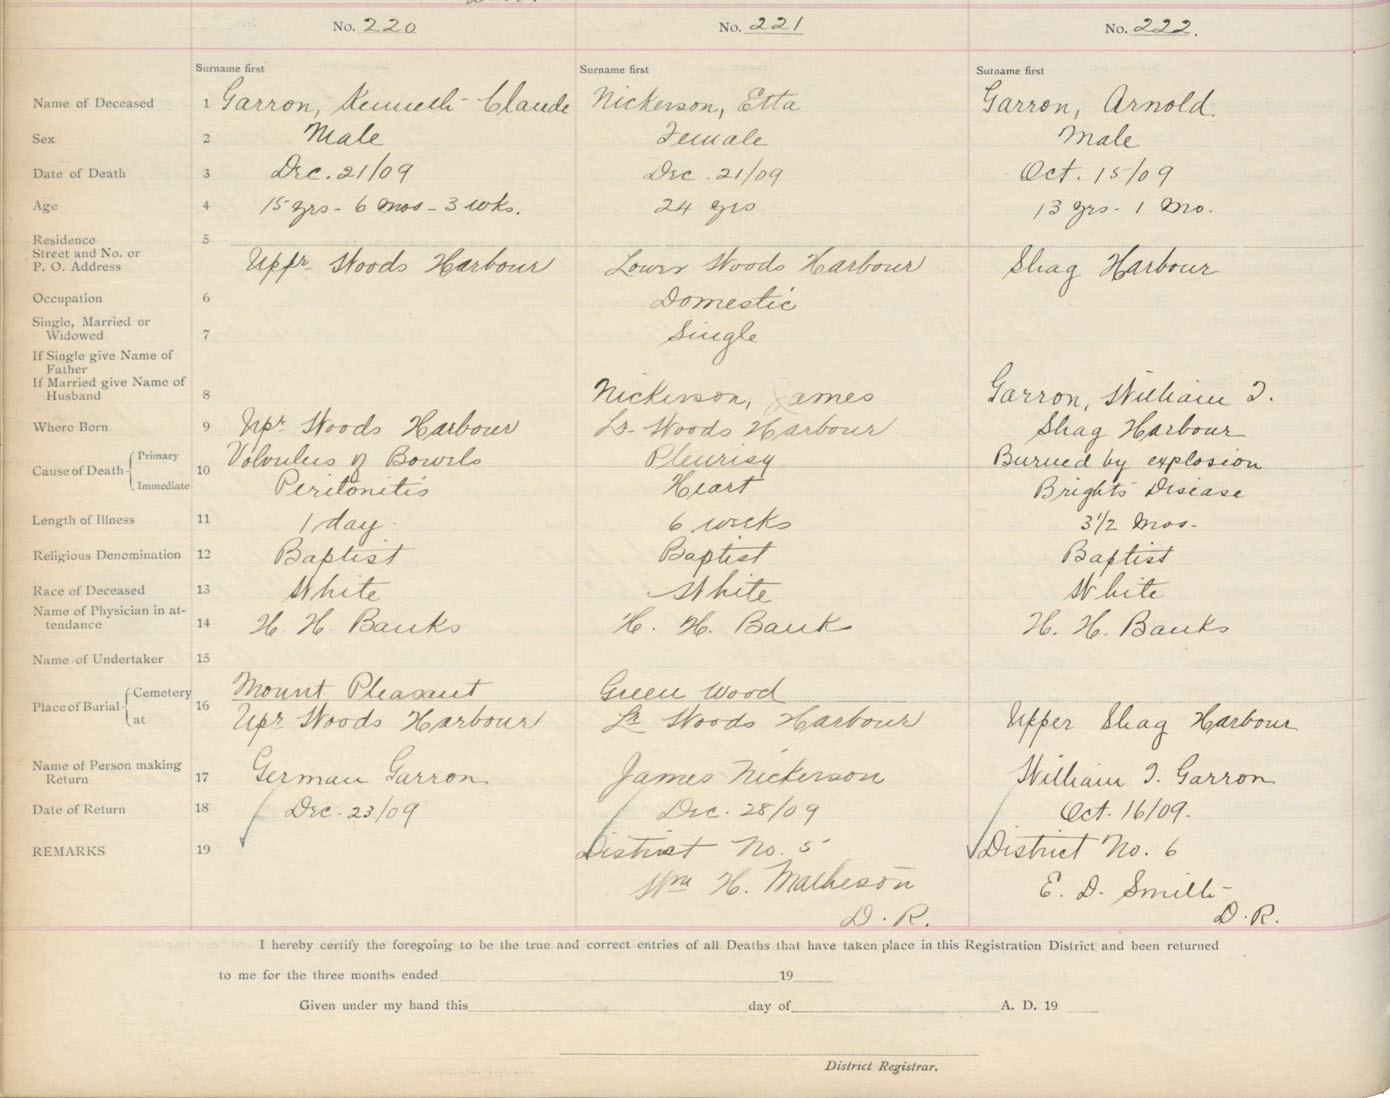 No. 220 No. 221 No. 222.
Surname first Surname first Surname first
Name of Deceased 1 Garron, Kenneth Claude Nickerson, Etta Garron, Arnold
Sex 2 Male Female Male
Date of Death 3 Dec. 21/09 Dec. 21/09 Oct. 15/09
Age 4 15 yrs - 6 mos - 3 wks. 24 yrs 13 yrs - 1 Mo.
Residence 5
Street and No. or
P. O. Address Uppr Woods Harbour Lower Woods Harbour Shag Harbour
Occupation 6 Domestic
Single, Married or
Widowed 7 Single
If Single give Name of
Father
If Married give Name of
Husband 8 Nickerson, James Garron, William T.
Where Born 9 Upr Woods Harbour Lr. Woods Harbour Shag Harbour
Cause of Death Primary 10 Volvulus of Bowels Pleurisy Burned by explosion
Immediate Peritonitis Heart Brights Disease
Length of Illness 11 1 day. 6 weeks 3 1/2 mos-
Religious Denomination 12 Baptist Baptist Baptist
Race of Deceased 13 White White White
Name of Physician in at-
tendance 14 H. H. Banks H. H. Banks H. H. Banks
Name of Undertaker 15
Place of Burial Cemetery 16 Mount Pleasant Green Wood
at Upr Woods Harbour Lr Woods Harbour Upper Shag Harbour
Name of Person making
Return 17 German Garron James Nickerson William T. Garron
Date of Return 18 Dec. 23/09 Dec. 28/09 Oct. 16/09.
REMARKS 19 District No. 5 District No. 6
Wm H. Matheson E. D. Smith
D. R. D. R.
I hereby certify the foregoing to be the true and correct entries of all Deaths that have taken place in this Registration District and been returned
to me for the three months ended 19
Given under my hand this day of A. D. 19
District Registrar.